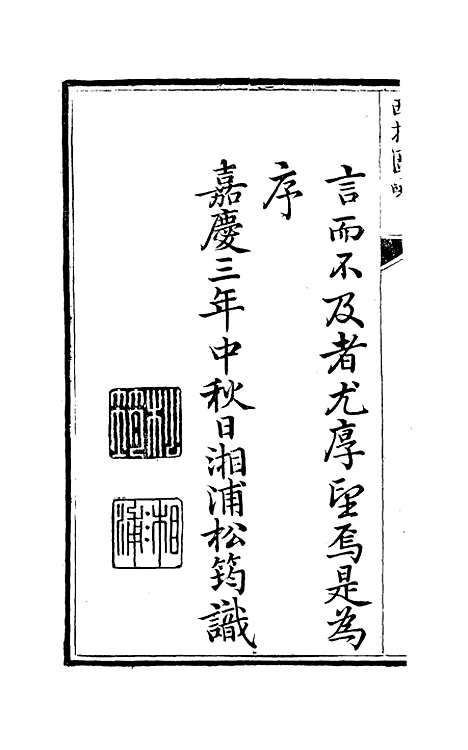 言而不及者尤厚望焉是為
序
嘉慶三年中秋日湘浦松筠識
松筠
湘浦